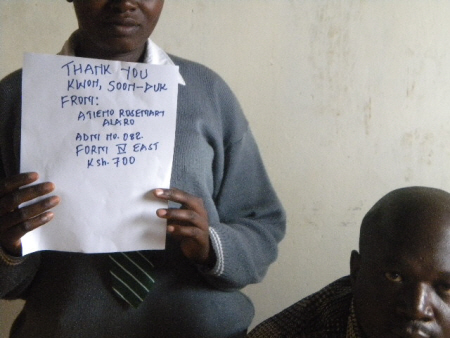 THANK YOU
KWON, SOON-DUK
FROM:
ATIENO ROSEMARY
ALARO
ADM NO. 082
FORM IV EAST
KSh. 700